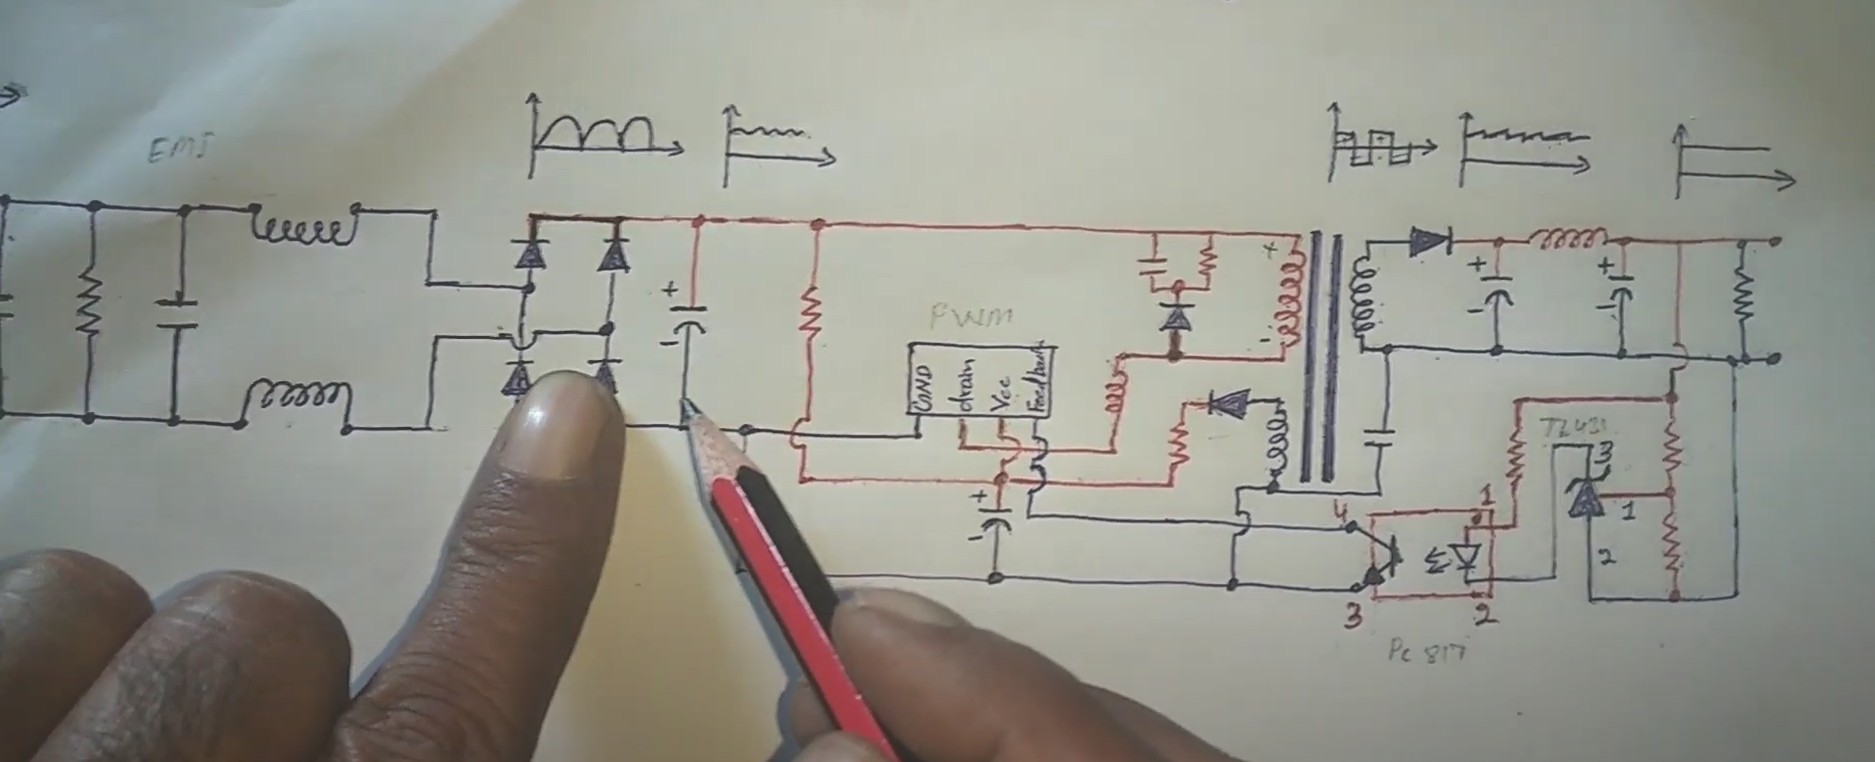 EMI
PWM
GND
drain
Vcc
Feedback
TL431
3
1
2
4
1
3
2
Pc 817